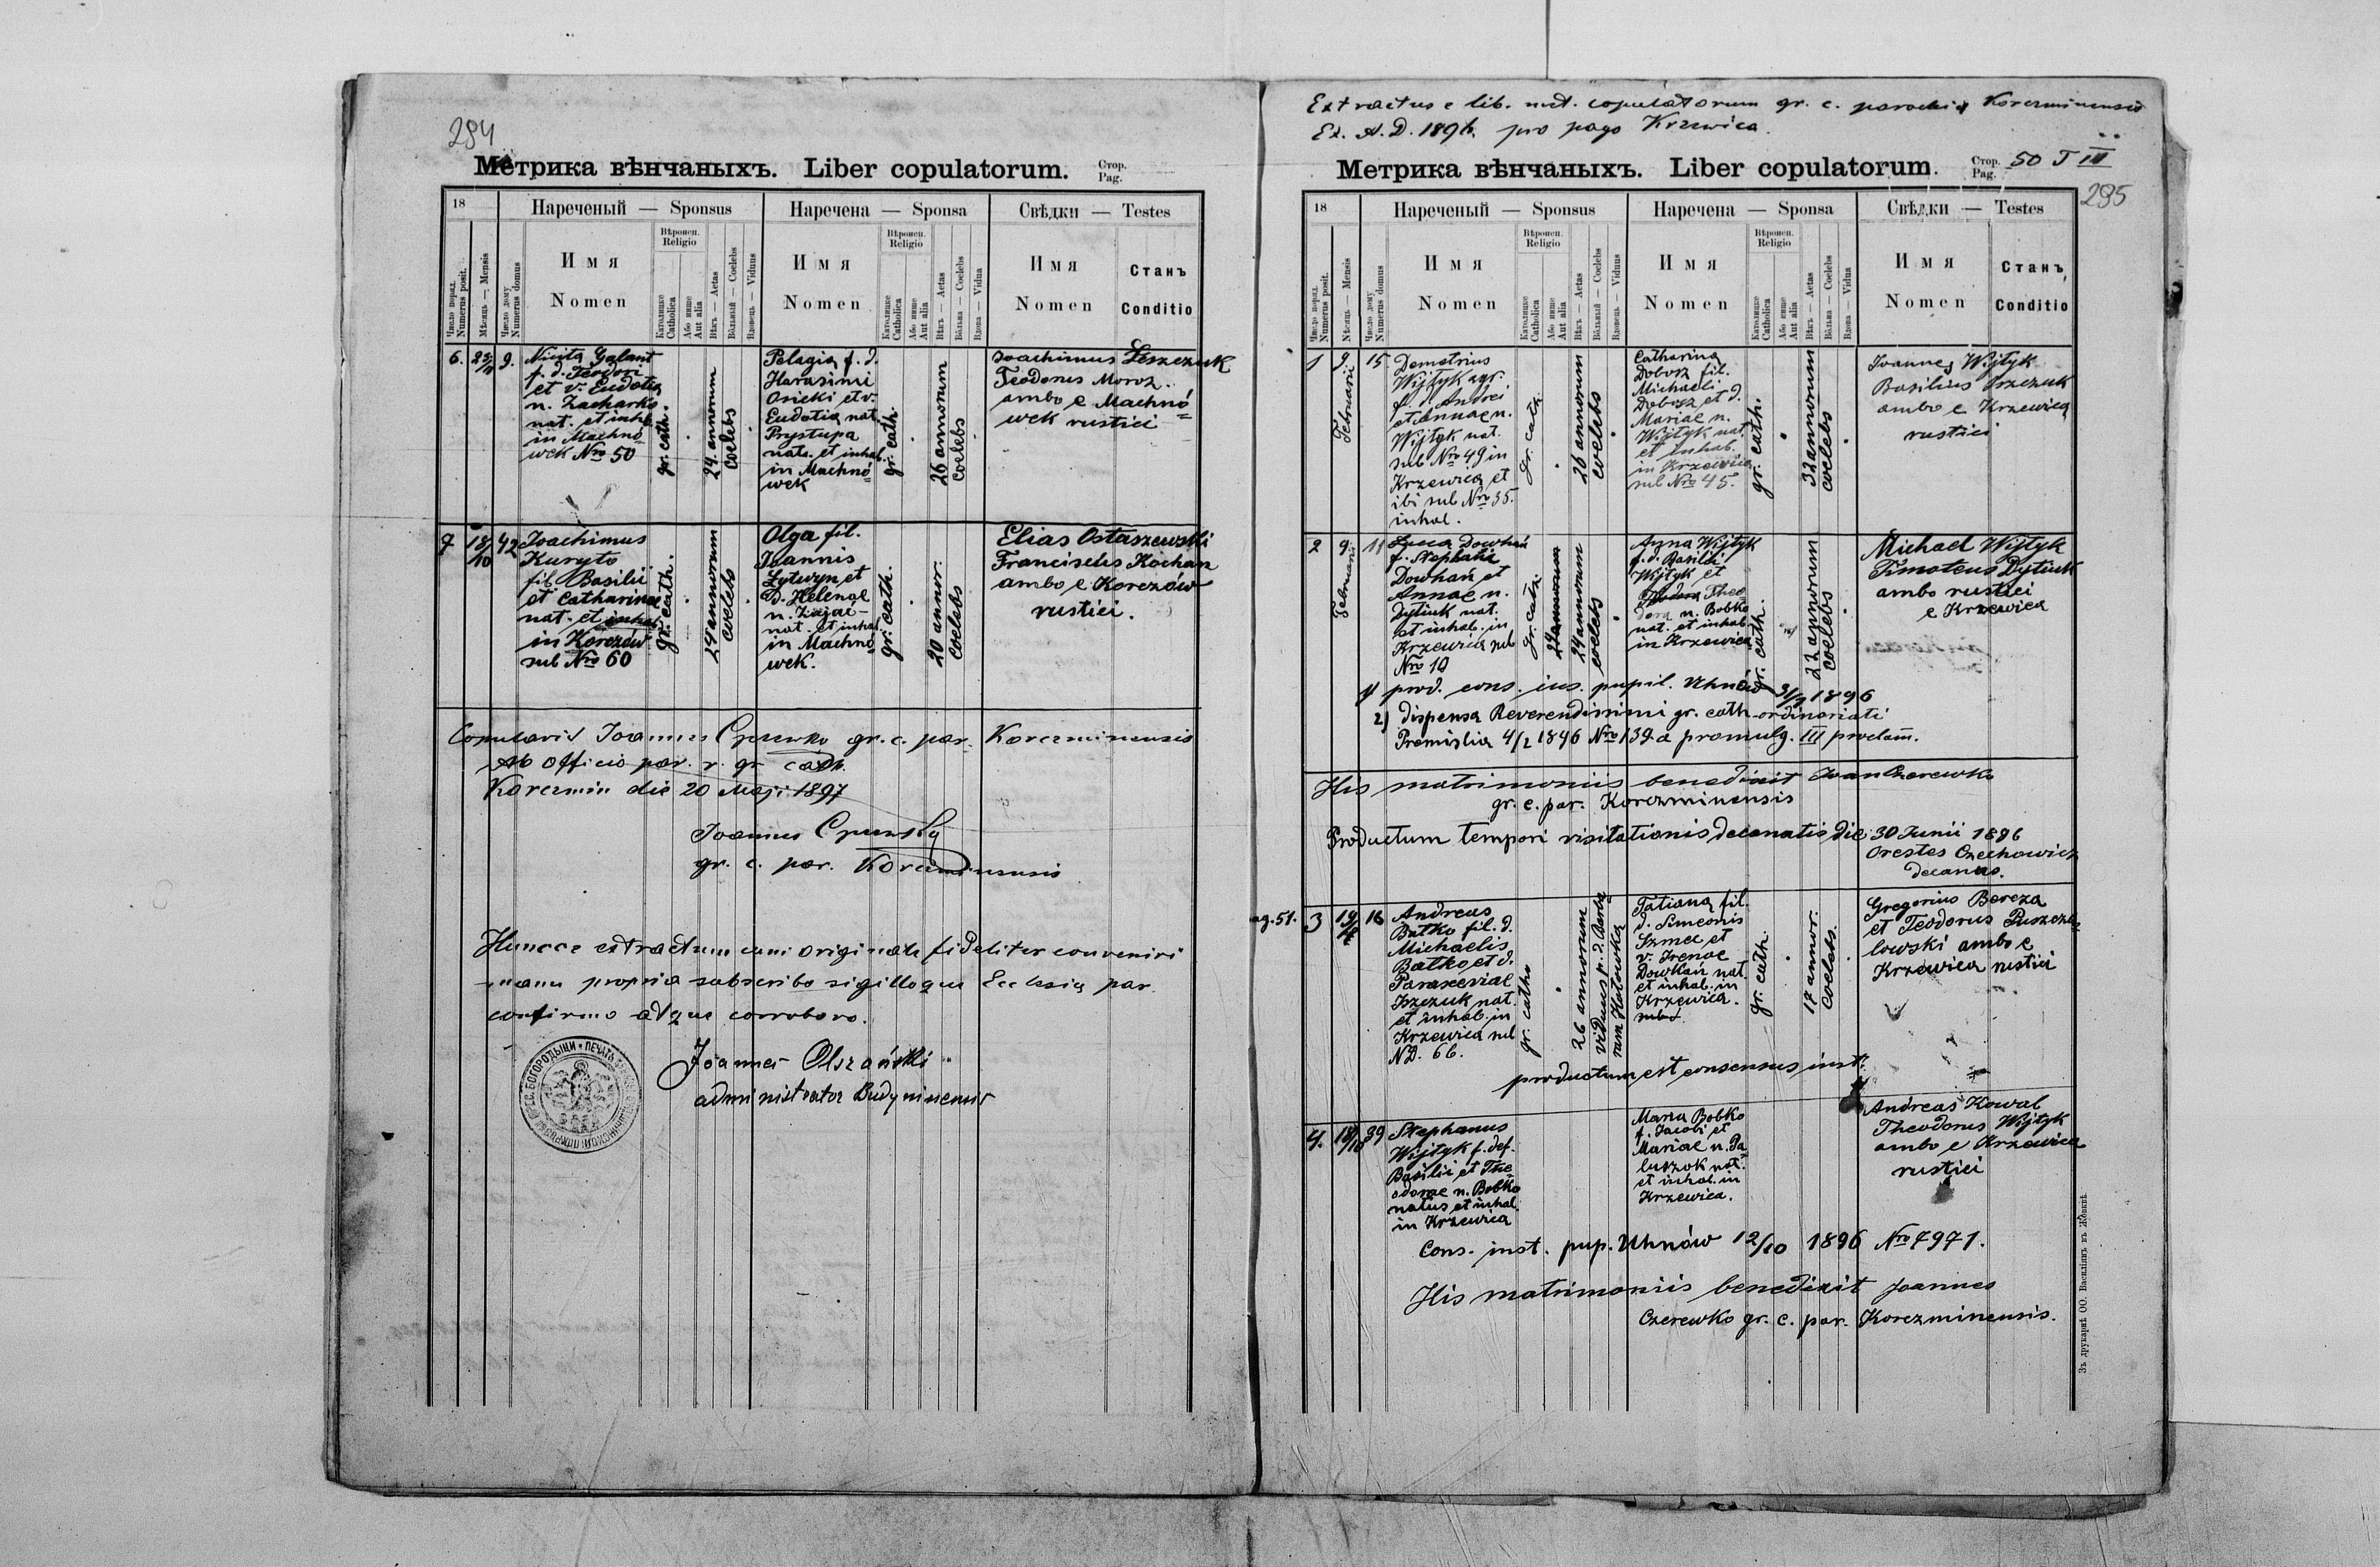 294
Метрика вѣнчаныхъ. Liber copulatorum. Стор. Pag.
18
Нареченый — Sponsus
Наречена — Sponsa
Свѣдки — Testes
Число поряд. Numerus posit.
Мѣсяць — Mensis
Число дому Numerus domus
Имя
Nomen
Вѣроисп. Religio
Католицке Catholica
Або инше Aut alia
Вѣкъ — Aetas
Вôльный — Coelebs
Вдовець — Viduus
Имя
Nomen
Вѣроисп. Religio
Католицке Catholica
Або инше Aut alia
Вѣкъ — Aetas
Вôльна — Coelebs
Вдова — Vidua
Имя
Nomen
Станъ
Conditio
6.
9.
Nicita Galant
f. d. Teodori
et v. Eudotia
n. Zacharko
nat. et inhab.
in Machnó
wek Nro 50
gr. cath.
24. annorum
coelebs
Pelagia f. d.
Harasimi
Osicki et v.
Eudotia nat.
Prystupa
nata et inhab.
in Machnó
wek
gr. cath.
26 annorum
coelebs
Joachimus Leszczuk
Teodorus Moroz
ambo e Machnó
wek rustici
7
18/10
42
Joachimus
Kuryto
fil. Basilii
et Catharinae
nat. et inhab.
in Korczów
sub Nro 60
gr. cath.
24 annorum
coelebs
Olga fil.
Joannis
Lytwyn et
D. Helenae
n. Zając
nat. et inhab.
in Machnó
wek.
gr. cath.
20 annor.
coelebs
Elias Ostaszewski
Franciscus Kochan
ambo e Korczów
rustici.
Copulavit Joannes Czerewko gr. c. par. Korczminensis
Ab officio par. r. gr. cath.
Korczmin die 20 Maji 1897
Joannes
gr. c. par. Korczminensis
Huncce extractum cum originale fideliter conveniri
manu propria subscribo sigilloque Ecclesia par.
confirmo atque corroboro.
Joannes Olszański
administrator Budyninensis
Extractus e lib. met. copulatorum gr. c. parochia Korczminensis
Ex. A. D. 1896. pro pago Krzewica.
Метрика вѣнчаныхъ. Liber copulatorum. Стор. Pag. 50 T III
295
18
Нареченый — Sponsus
Наречена — Sponsa
Свѣдки — Testes
Число поряд. Numerus posit.
Мѣсяць — Mensis
Число дому Numerus domus
Имя
Nomen
Вѣроисп. Religio
Католицке Catholica
Або инше Aut alia
Вѣкъ — Aetas
Вôльный — Coelebs
Вдовець — Viduus
Имя
Nomen
Вѣроисп. Religio
Католицке Catholica
Або инше Aut alia
Вѣкъ — Aetas
Вôльна — Coelebs
Вдова — Vidua
Имя
Nomen
Станъ,
Conditio
1
9.
Februarii
15
Demetrius
Wijtyk agr.
f. d. Andrei
et Annae n.
Wijtyk nat.
sub Nro 49 in
Krzewica et
ibi sub Nro 35.
inhab.
gr. cath.
26 annorum
coelebs
Catharina
Dobosz fil.
Michaeli
Dobosz et d.
Mariae n.
Wijtyk nat.
et inhab.
in Krzewica
sub Nro 45.
gr. cath.
32 annorum
coelebs
Joannes Wijtyk
Basilius Iszczuk
ambo e Krzewica
rustici
2
9.
Februarii
11
Luca Dowhań
f. Stephani
Dowhań et
Annae n.
Dytiuk nat.
et inhab. in
Krzewica sub
Nro 10
gr. cath.
24 annorum
24 annorum
coelebs
Anna Wijtyk
f. d. Basilii
Wijtyk et
Theo
dora n. Bobko
nat. et inhab.
in Krzewica
gr. cath.
22 annorum
coelebs
Michael Wijtyk
Timoteus Dytiuk
ambo rustici
e Krzewica
1) prod. cons. ins. pupil. Uhnów 31/1 1896
2) dispensa Reverendissimi gr. cath. ordinariati
Premislia 4/2 1896 Nro 139 a promulg. III proclam.
His matrimoniis benedixit Joan Czerewko
gr. c. par. Korczminensis
Productum tempori visitationis decanatis die 30 Junii 1896
Orestes Czechowicz
decanus.
ag. 51.
3
16
Andreas
Batko fil. d.
Michaelis
Batko et d.
Parasceviae
Iszczuk nat.
et inhab. in
Krzewica sub
ND. 66.
gr. catho
26 annorum
viduus p. d. Barba
ram Kotowska
Tatiana fil.
d. Simeonis
Szmel et
v. Irenae
Dowhań nat.
et inhab. in
Krzewica.
sub
gr. cath.
17 annor.
coelebs.
Gregorius Bereza
et Teodorus
lowski ambo e
Krzewica rustici
productum est consensus inst.
4.
18/10
39
Stephanus
Wijtyk f. def.
Basilii et The
odorae n. Bobko
natus et inhab.
in Krzewica
Maria Bobko
f. Jacobi et
Mariae n. Pa
luszok nat.
et inhab. in
Krzewica.
Andreas Kowal
Theodorus Wijtyk
ambo e Krzewica
rustici
Cons. inst. pup. Uhnów 12/10 1896 Nro 7971.
His matrimoniis benedixit Joannes
Czerewko gr. c. par. Korczminensis.
Зъ друкарнѣ ОО. Василіянъ въ Жовквѣ